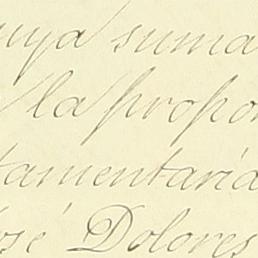 uya suma
la propor
tamentaria
osé Dolores